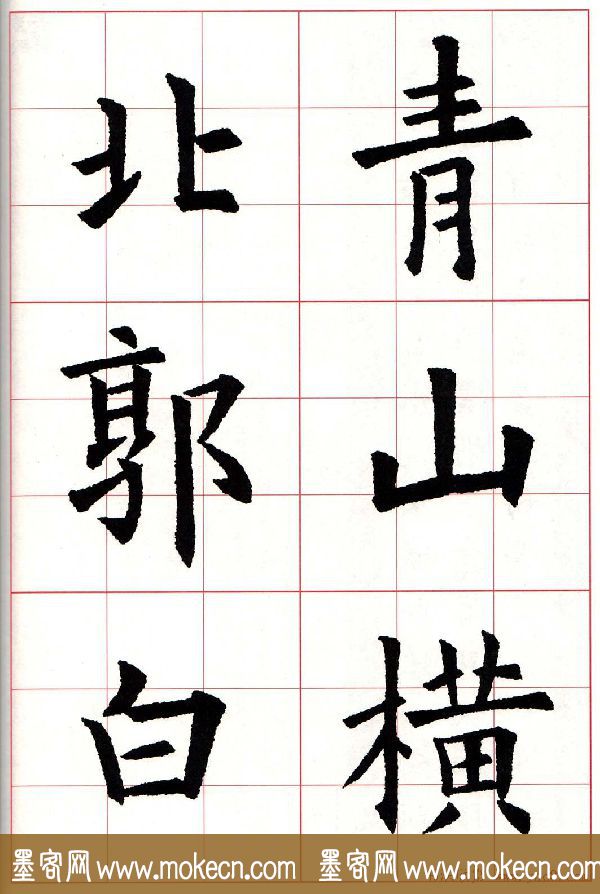 青山橫
北郭白
墨客网 www.mokecn.com 墨客网 www.mokecn.com